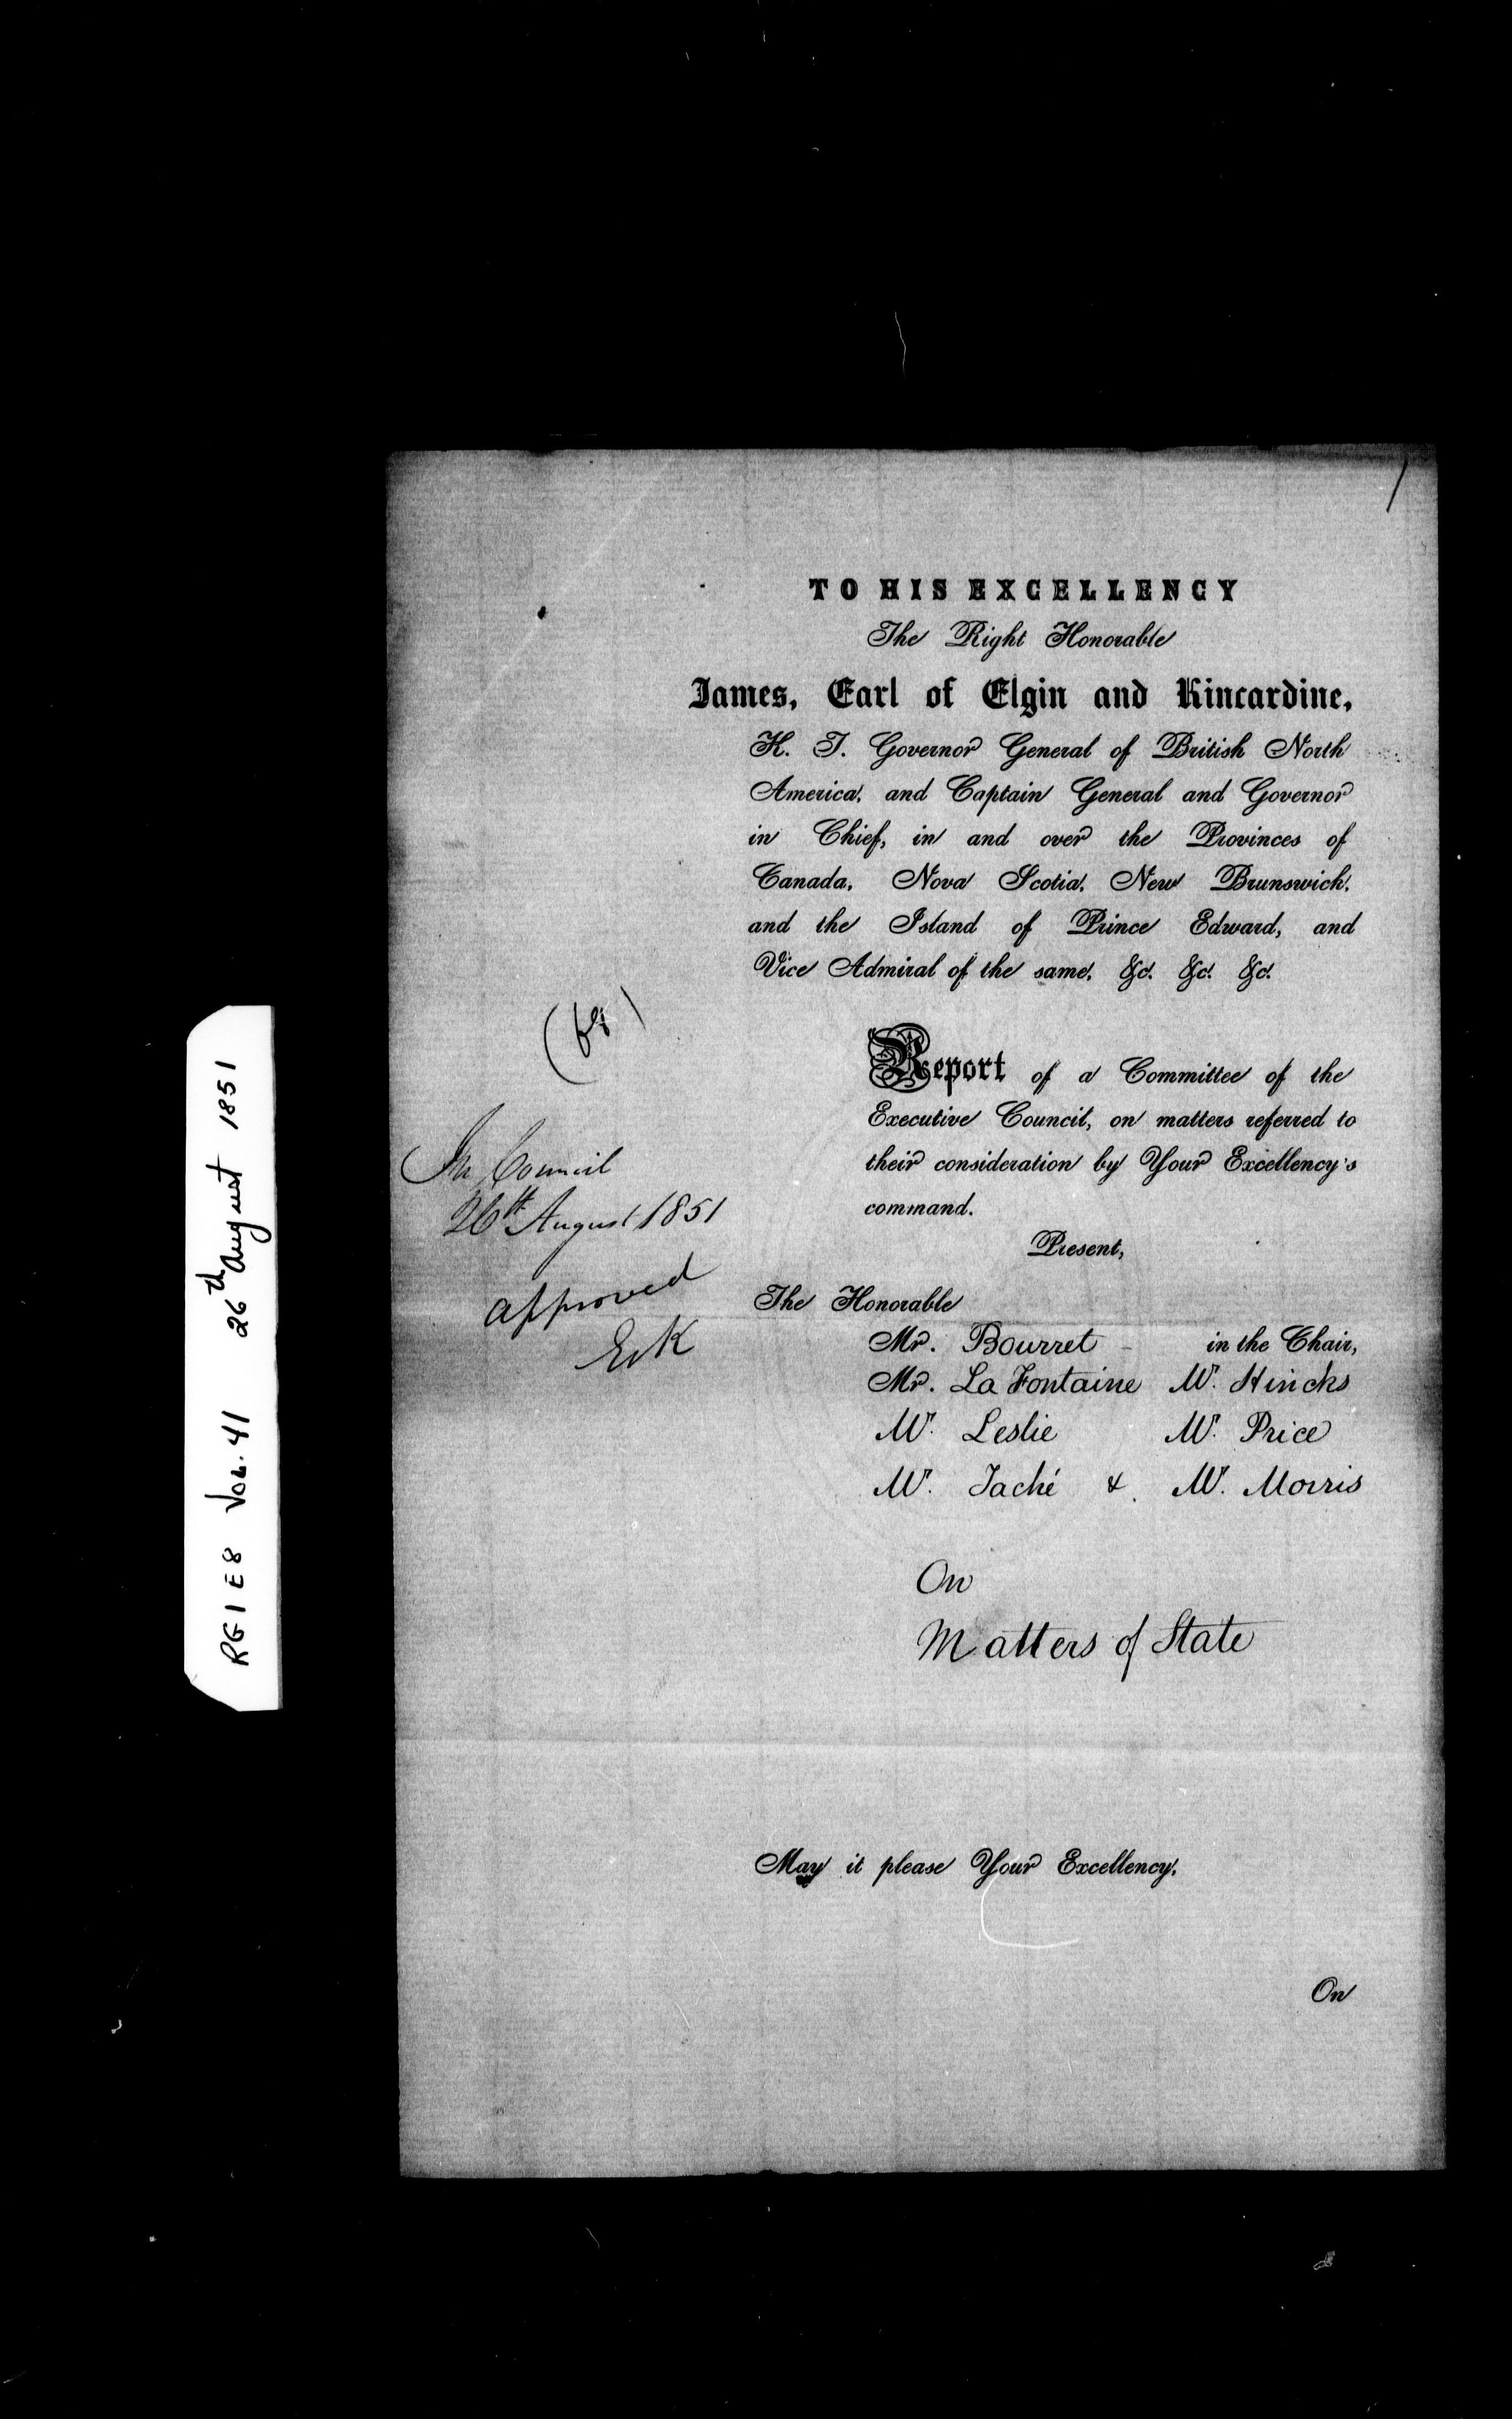 RG1 E8 Vol. 41 26th August 1851
TO HIS EXCELLENCY
The Right Honorable
James, Earl of Elgin and Kincardine,
K. T. Governor General of British North
America, and Captain General and Governor
in Chief, in and over the Provinces of
Canada, Nova Scotia, New Brunswick,
and the Island of Prince Edward, and
Vice Admiral of the same, &c. &c. &c.
Report of a Committee of the
Executive Council, on matters referred to
their consideration by Your Excellency's
command.
In Council
26th August 1851
approved
E&K
Present,
The Honorable
Mr. Bourret in the Chair,
Mr. La Fontaine Mr. Hincks
Mr. Leslie Mr. Price
Mr. Taché & Mr. Morris
On
Matters of State
May it please Your Excellency,
On